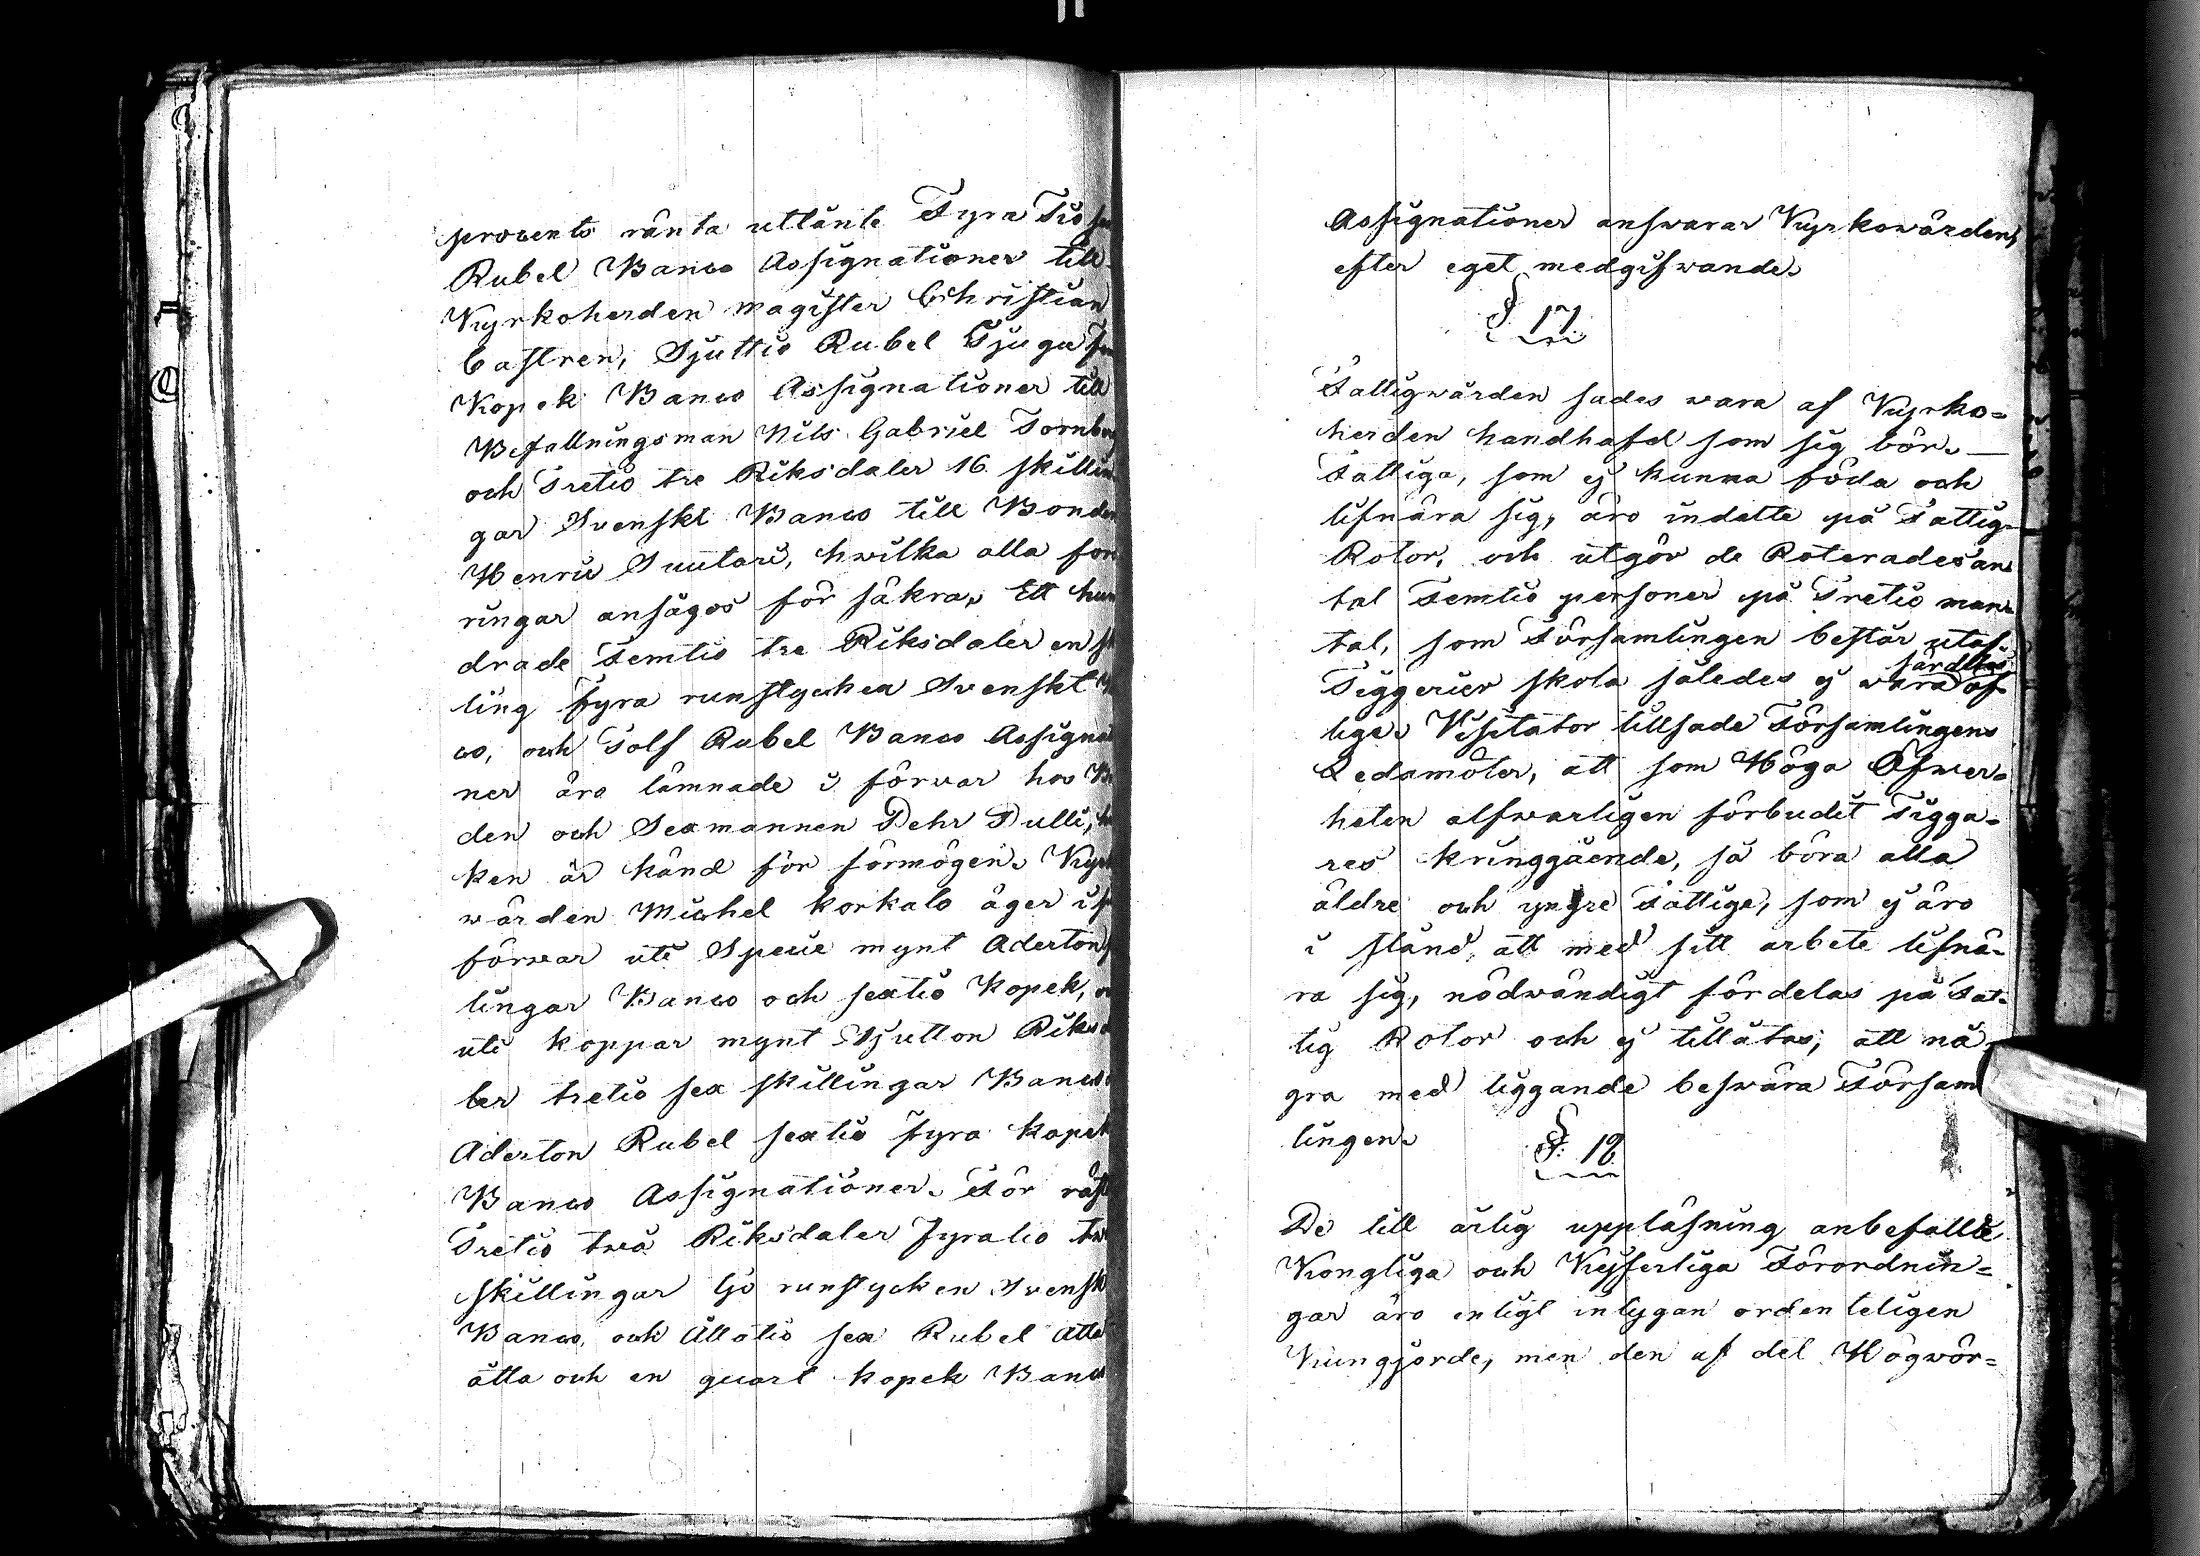 procents ränta utlänte Fyra Tio
Rubel Banco Assignationer till
Kyrkoherden Magister Christian
Castren, Sjuttio Rubel Tjugu
Kopek Banco Assignationer till
Befallningsman Nils Gabriel Fornb
och Tretio tre Riksdaler 16 skillin
gar Svenskt Banco till Bonden
Henric Suutari, hwilka alla for
ringar ansågos för säkra. Ett hun
drade Femtio tre Riksdaler en
ling fyra runstycken Svenskt
co, och Tolf Rubel Banco Assignatio
ner äro lämnade i förvar hos
den och Sexmannen Pehr Pulli,
ken är känd för förmögen. Kyrk
wärden Michel Korkalo äger i
förwar uti Specie mynt Aderton
lingar Banco och sextio Kopek,
uti koppar mynt Sjutton Riksd
ler tretio sex skillingar Banco
Aderton Rubel sextio fyra Kopek
Banco Assignationer. För
Tretio twå Riksdaler fyratio
skillingar tjo runstycken Svensk
Banco, och Åttatio sex Rubel
åtta och en quart kopek Banco
Assignationer answarar Kyrkowärden,
efter eget medgifwande.
§ 17
Fattigwården sades wara af Kyrko=
herden handhafd som sig bör. —
Fattiga, som ej kunna föda och
lifnära sig, äro indelte på Fattig-
Rotor, och utgör de Roterades an
tal Femtio personer på Tretio man
tal, som Församlingen består utaf.
Tiggerier skola således ej wara af
särdeles
lige. Visitator tillsade Församlingens
Ledamöter, att som Höga Öfwer=
heten alfwarligen förbudit Tigga=
res kringgående, så böra alla
äldre och yngre Fattige, som ej äro
i stånd, att med sitt arbete lifnä=
ra sig, nödwändigt fördelas på Fat=
tig Rotor och ej tillåtas, att nå
gra med tiggande beswära Försam
lingen.
§ 18
De till årlig uppläsning anbefallde
Kongliga och Kejserliga Förordnin=
gar äro enligt intygan ordenteligen
Kungjorde, men den af det Högwör=